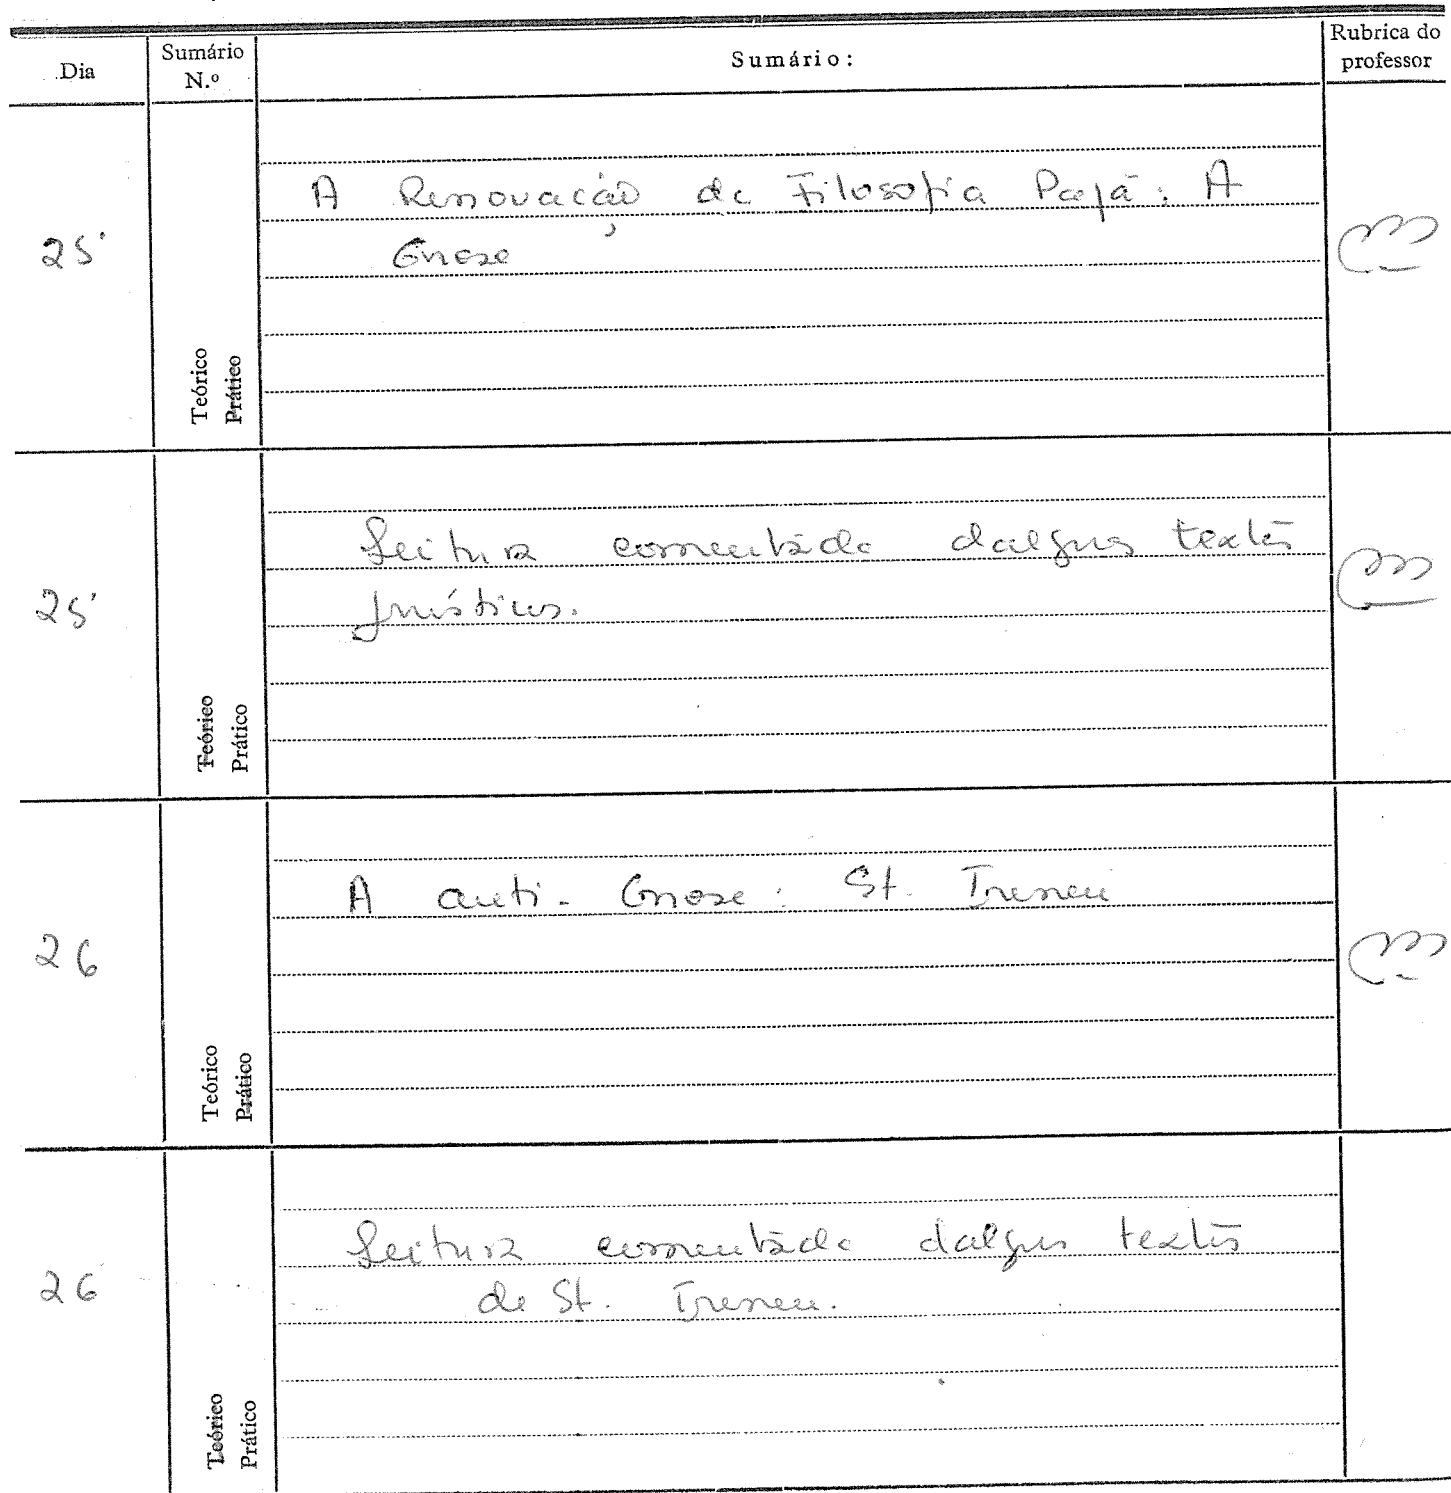 Dia
Sumário
N.º
Sumário:
Rubrica do
professor
25
A Renovação da Filosofia Pagã: A
Gnose
Teórico
Prático
25
Leitura comentada dalguns textos
gnósticos.
Teórico
Prático
26
A anti-Gnose: St. Ireneu
Teórico
Prático
26
Leitura comentada dalguns textos
de St. Ireneu.
Teórico
Prático